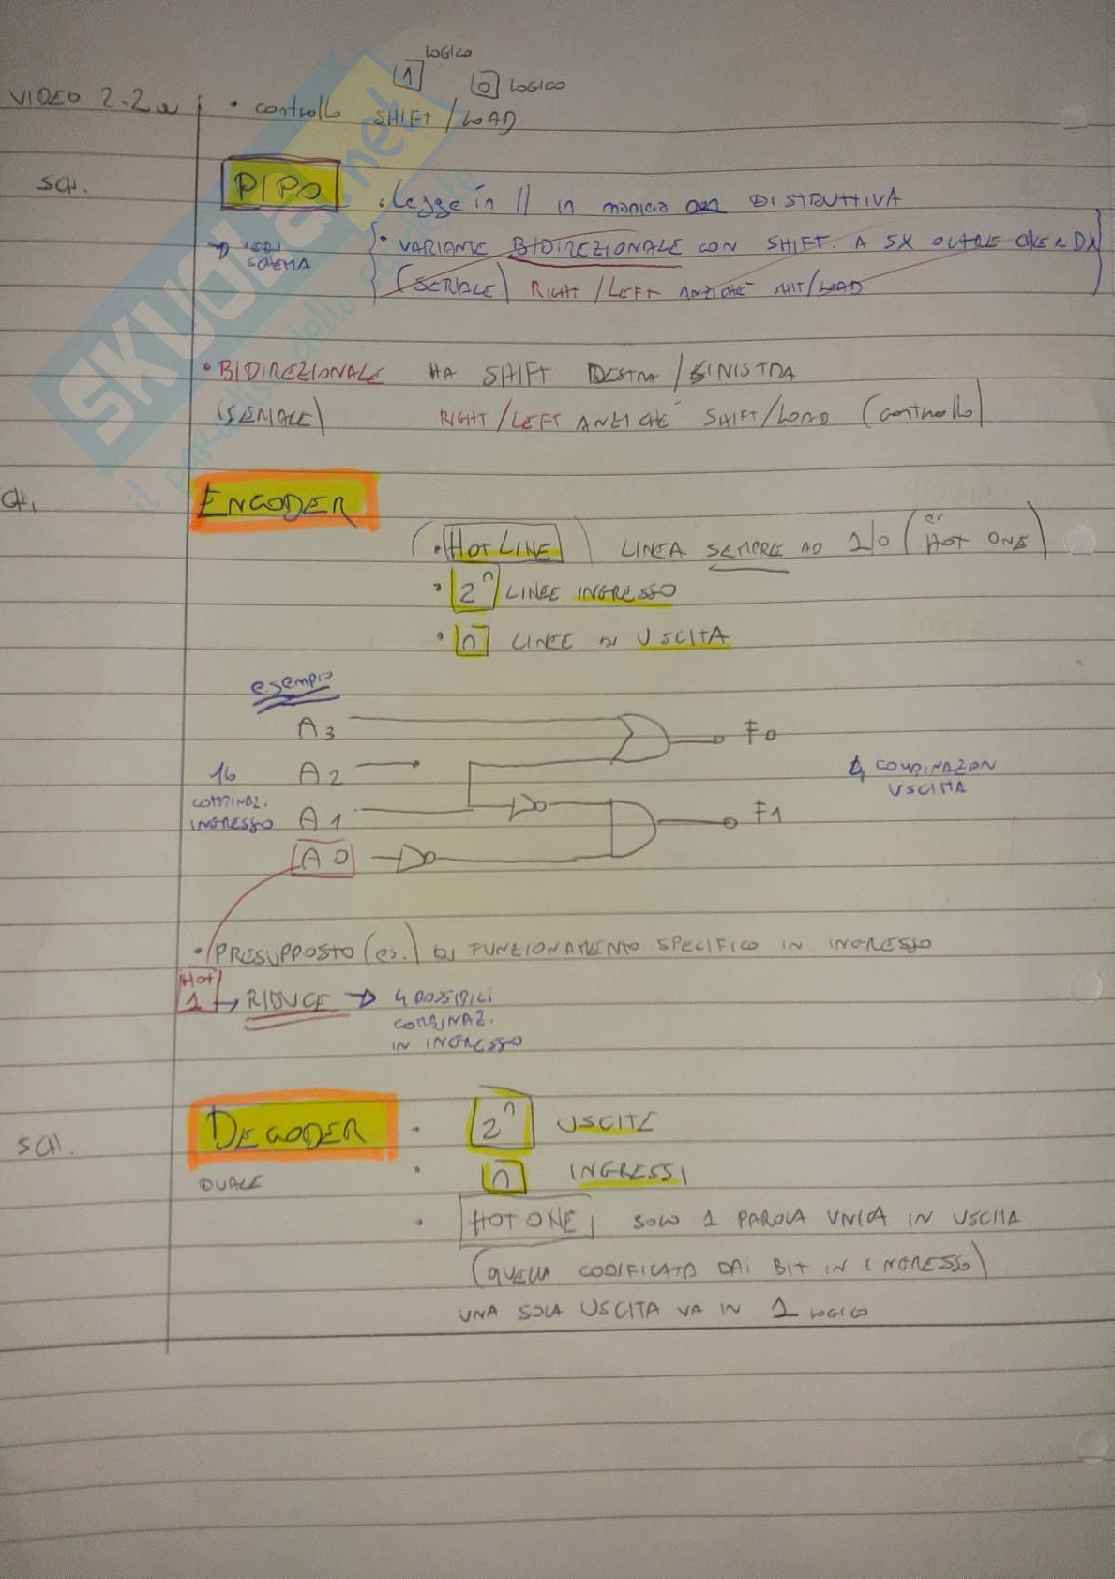 LOGICO
1 0 LOGICO
VIDEO 2.2a • controllo SHIFT / LOAD
SCH. PIPO • Legge in // in maniera non DISTRUTTIVA
→ VEDI SCHEMA
• VARIANTE BIDIREZIONALE CON SHIFT. A SX OLTRE CHE A DX
(SERIALE) RIGHT / LEFT ANZICHÉ SHIT/LOAD
• BIDIREZIONALE HA SHIFT DESTRA / SINISTRA
(SERIALE) RIGHT / LEFT ANZICHÉ SHIFT/LOAD (controllo)
CH. ENCODER
(• HOT LINE) LINEA SEMPRE AD 1/0 (es. HOT ONE)
• 2ⁿ LINEE INGRESSO
• n LINEE IN USCITA
esempio
A3 F0
16 A2 4 COMBINAZION
COMBINAZ. USCITA
INGRESSO A1 F1
A0
• PRESUPPOSTO (es.) DI FUNZIONAMENTO SPECIFICO IN INGRESSO
HOT
1 → RIDUCE → 4 POSSIBILI
COMBINAZ.
IN INGRESSO
SCH. DECODER • 2ⁿ USCITE
DUALE • n INGRESSI
• HOT ONE SOLO 1 PAROLA UNICA IN USCITA
(QUELLA CODIFICATA DAI BIT IN INGRESSO)
UNA SOLA USCITA VA IN 1 LOGICO
SKUOLA.net